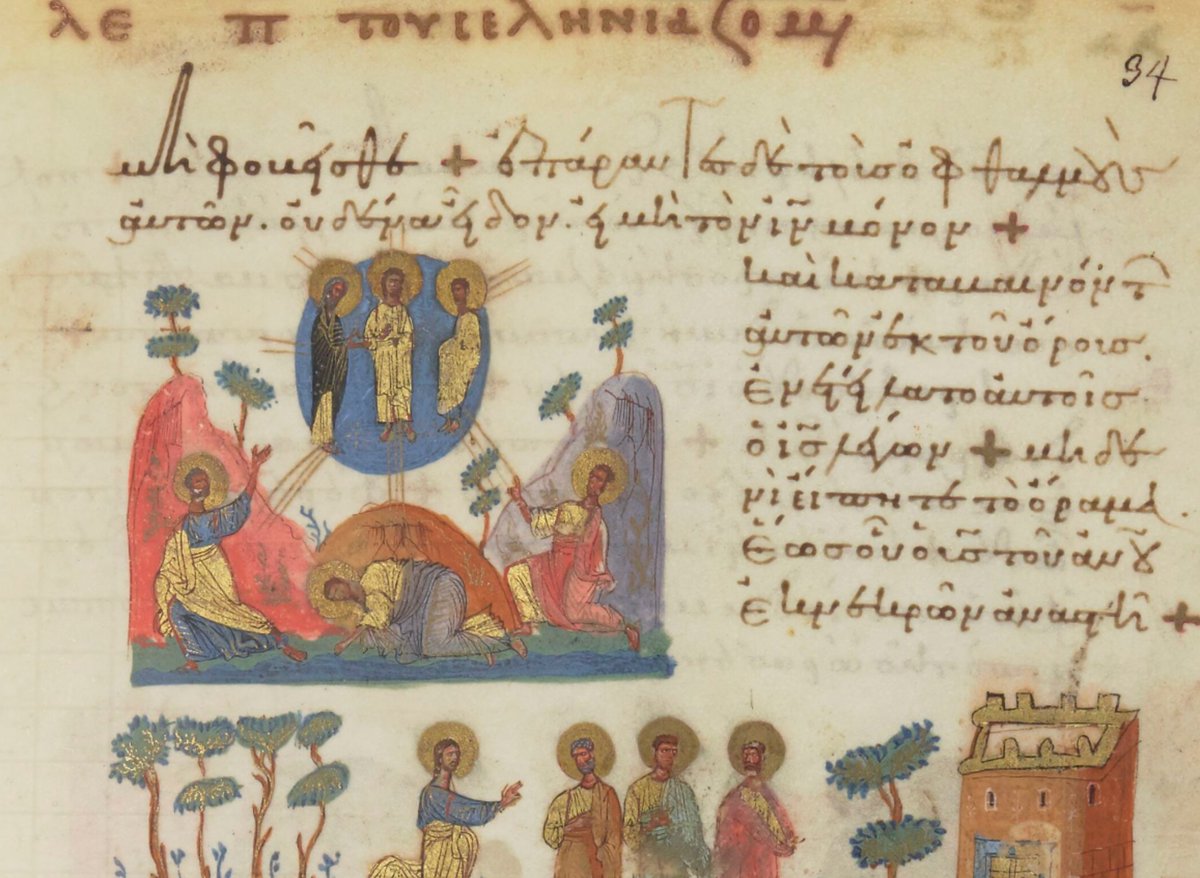 λε π του σεληνιαζομ
34
μὴ φοβεῖσθε + ἐπάραντες δὲ τοὺς ὀφθαλμοὺς
ἀυτῶν. οὐδένα εἶδον. εἰ μὴ τὸν ἰν μόνον +
καὶ καταβαινόντ
ἀυτῶν ἐκ τοῦ ὄρους.
ἐνετείλατο ἀυτοῖς
ὁ ις λέγων + μηδε
νὶ εἴπητε τὸ ὅραμα.
ἕως οὗ ὁ υις τοῦ ἀνου
ἐκ νεκρῶν ἀναστῆ +